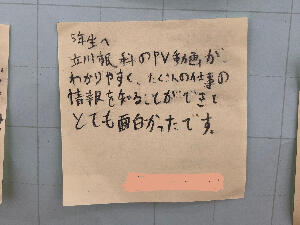 5年生へ
立川眼科のPV動画が、
わかりやすく、たくさんの仕事の
情報を知ることができて
とても面白かったです。